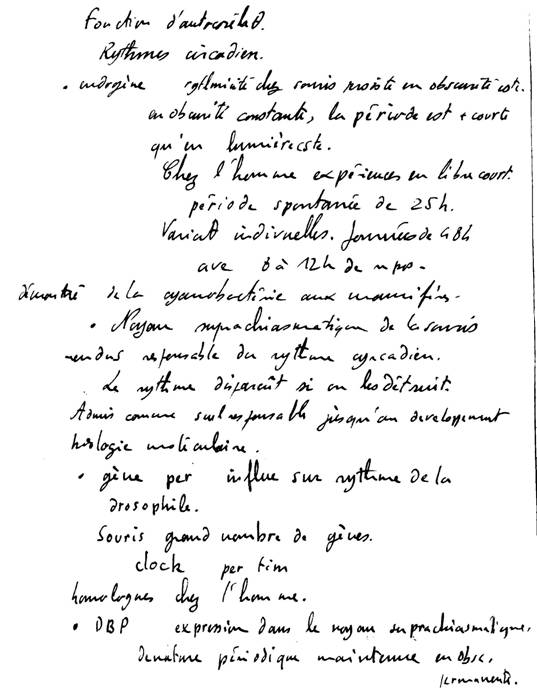 Fonction d'autocorélat°.
Rythmes circadien.
• endogène rythmicité chez souris persiste en obscurité cste.
en obscurité constante, la période est + courte
qu'en lumière cste.
Chez l'homme expériences en libre court.
période spontanée de 25h.
Variat° indivuelles. Journées de 48h
ave 8 à 12h de repos.
démontré de la cyanobactérie aux mammifères.
• Noyau suprachiasmatique de la souris
rendus responsable du rythme cyrcadien.
Le rythme disparaît si on les détruit.
Admis comme seul responsable jusqu'au developpement
biologie moléculaire.
• gène per influe sur rythme de la
drosophile.
Souris grand nombre de gènes.
clock per tim
homologues chez l'homme.
• DBP expression dans le noyau suprachiasmatique,
de nature périodique maintenue en obsc.
permanente.